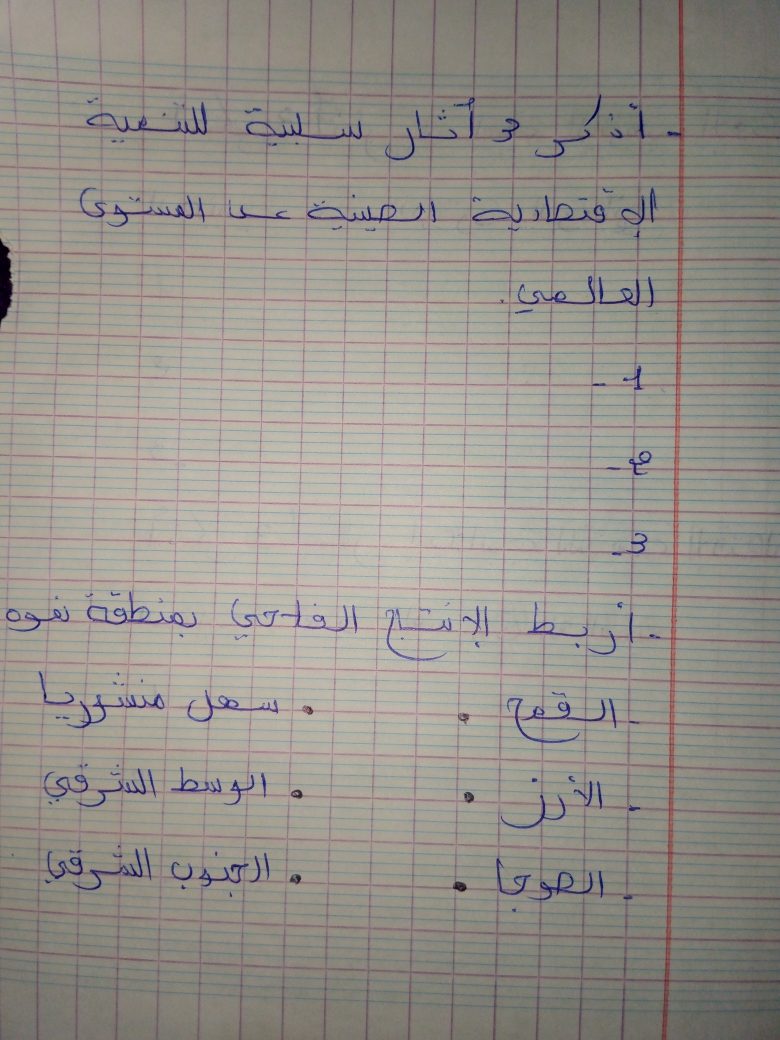 - أذكر 3 أثار سلبية للتنمية
الإقتصادية الصينية على المستوى
العالمي.
1 -
2 -
3 -
- اربط الإنتاج الفلاحي بمنطقة نموه
- القمح • • سهل منشوريا
- الأرز • • الوسط الشرقي
- الصوجا • • الجنوب الشرقي